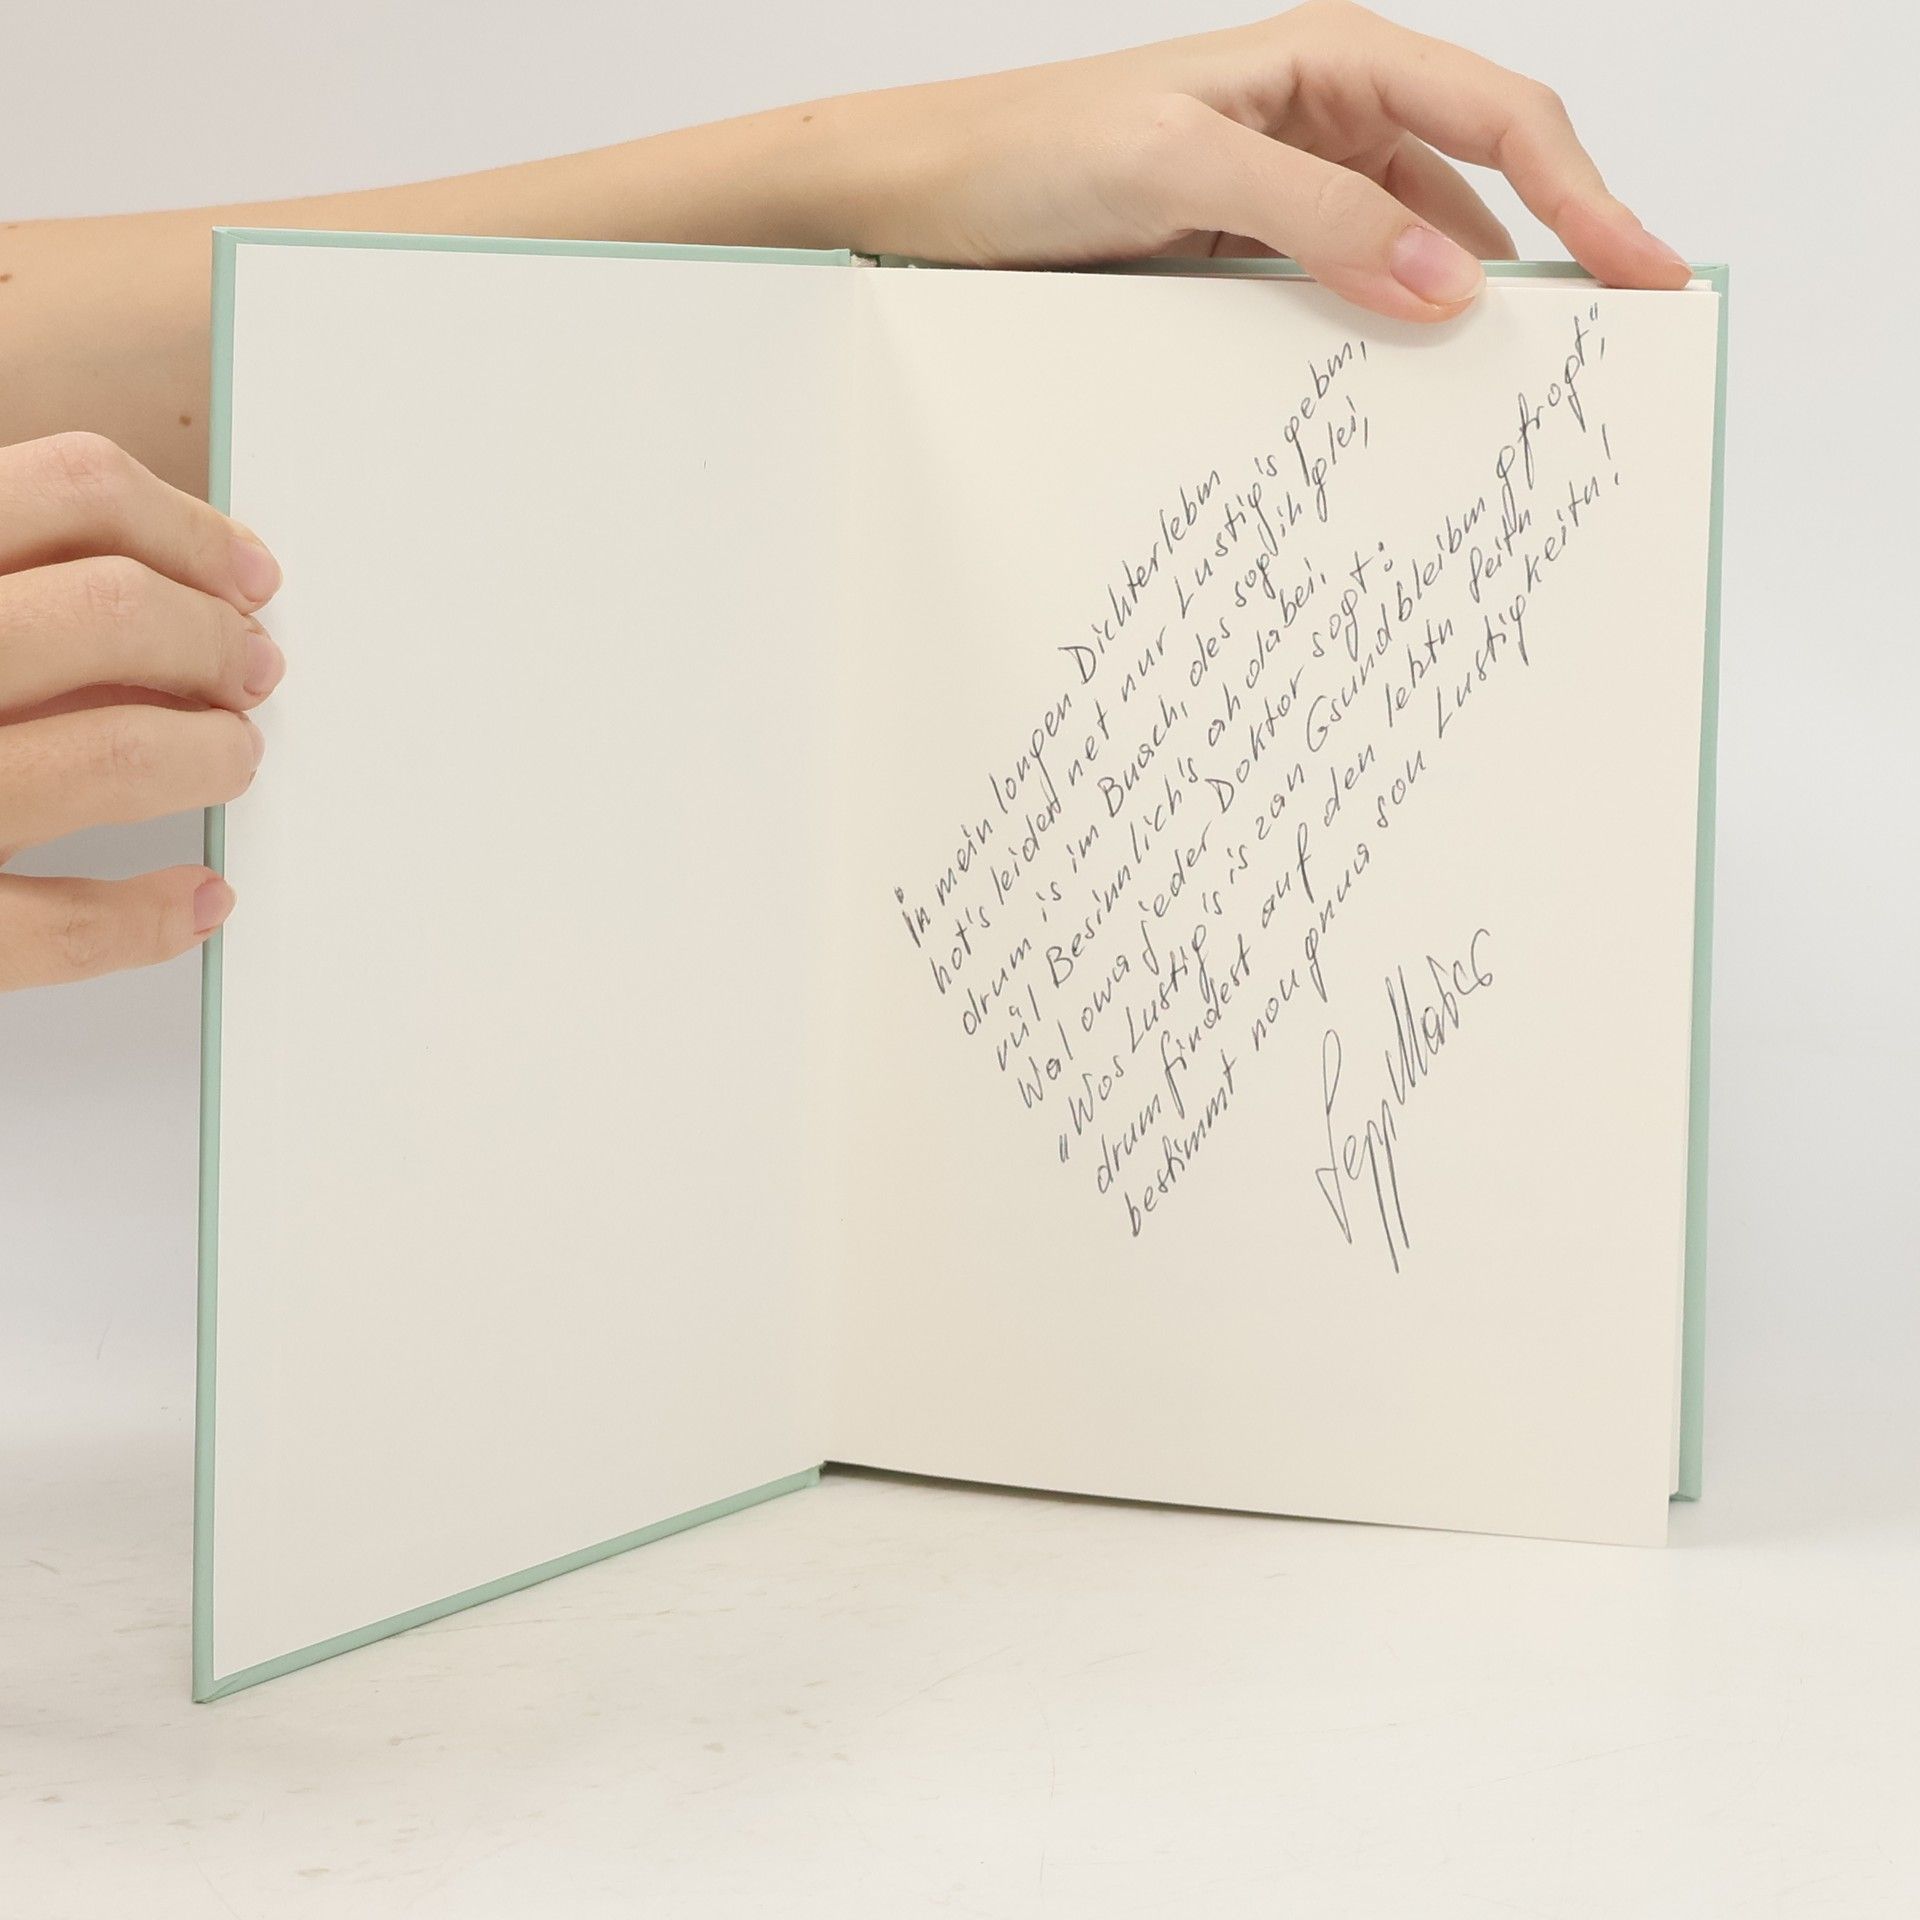 In mein longen Dichterlebm
hot's leider net nur Lustig's gebm,
drum is im Buach, des sog ih glei,
vül Besinnlich's ah dabei.
Wal owa jeder Doktor sogt:
„Wos Lustig's is zan Gsundbleibm gfrogt",
drum findest auf den letztn Seitn
bestimmt nou gnua sou Lustigkeitn!
Sepp